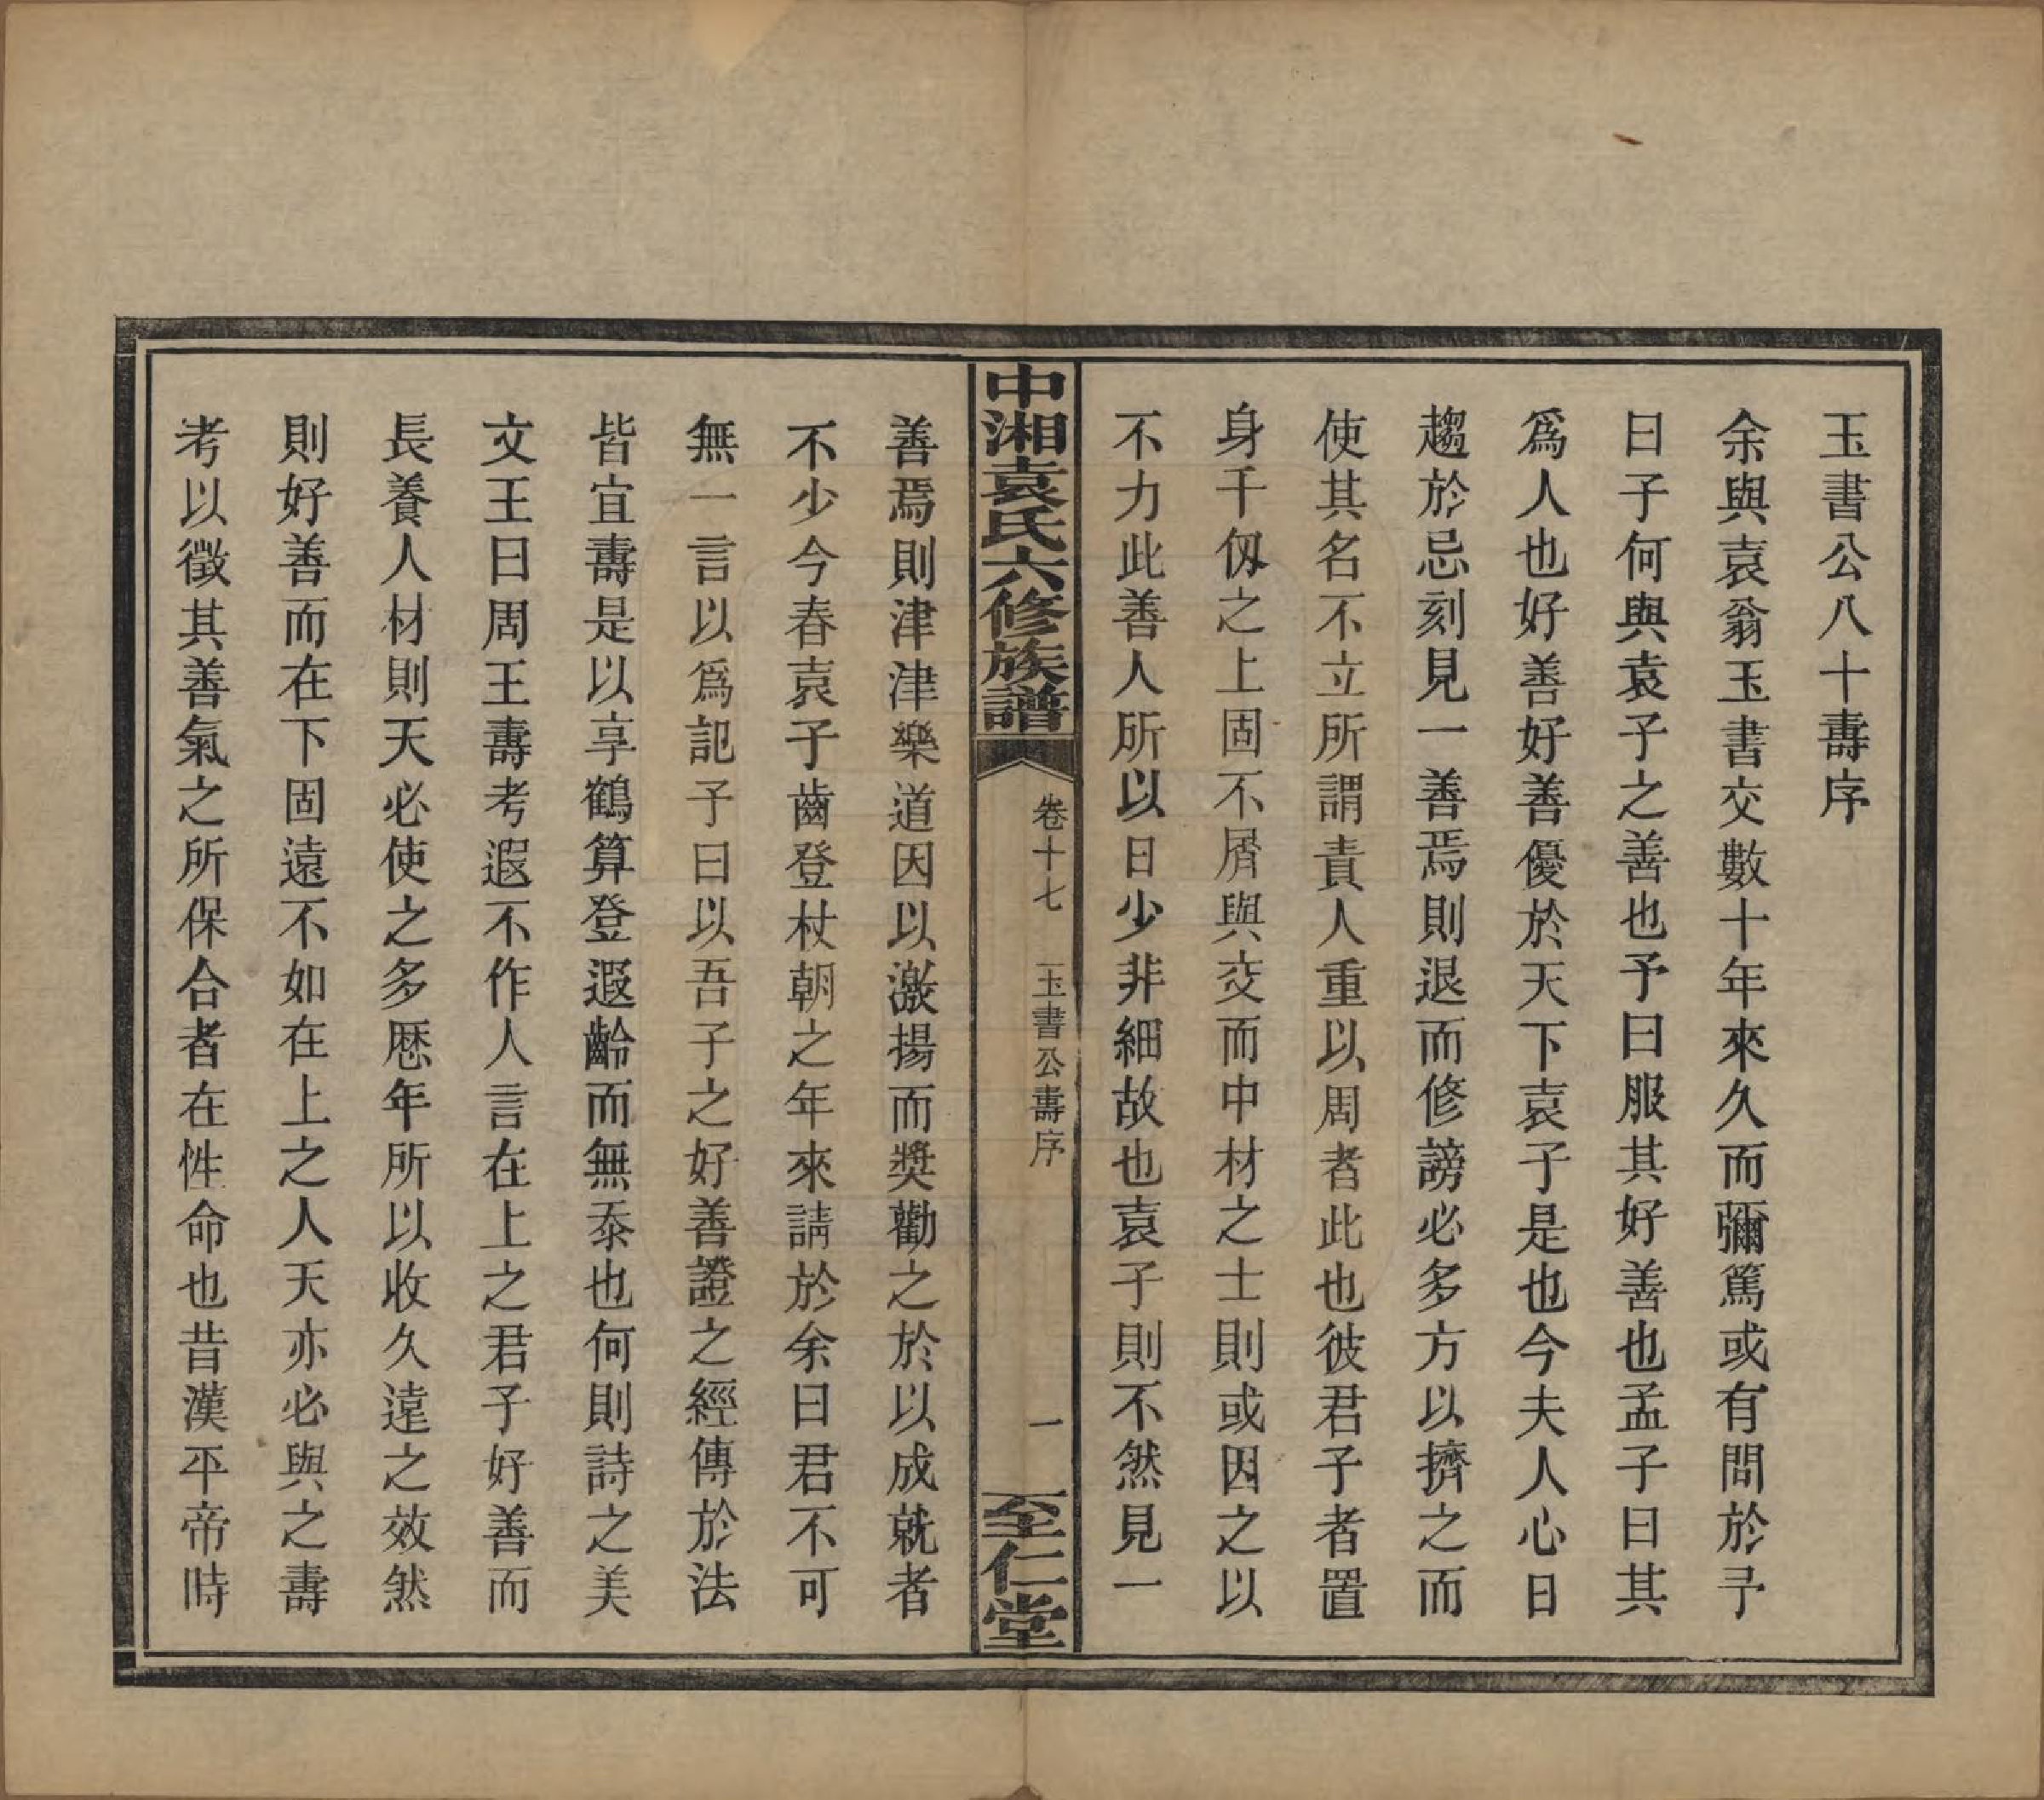 玉書公八十壽序
余與袁翁玉書交數十年來久而彌篤或有問於予
曰子何與袁子之善也予曰服其好善也孟子曰其
爲人也好善好善優於天下袁子是也今夫人心日
趨於忌刻見一善焉則退而修謗必多方以擠之而
使其名不立所謂責人重以周者此也彼君子者置
身千仭之上固不屑與交而中材之士則或因之以
不力此善人所以日少非細故也袁子則不然見一
中湘袁氏六修族譜
卷十七
玉書公壽序
一
至仁堂
善焉則津津樂道因以激揚而獎勸之於以成就者
不少今春袁子齒登杖朝之年來請於余曰君不可
無一言以爲記予曰以吾子之好善證之經傳於法
皆宜壽是以享鶴算登遐齡而無忝也何則詩之美
文王曰周王壽考遐不作人言在上之君子好善而
長養人材則天必使之多歷年所以收久遠之效然
則好善而在下固遠不如在上之人天亦必與之壽
考以徵其善氣之所保合者在性命也昔漢平帝時